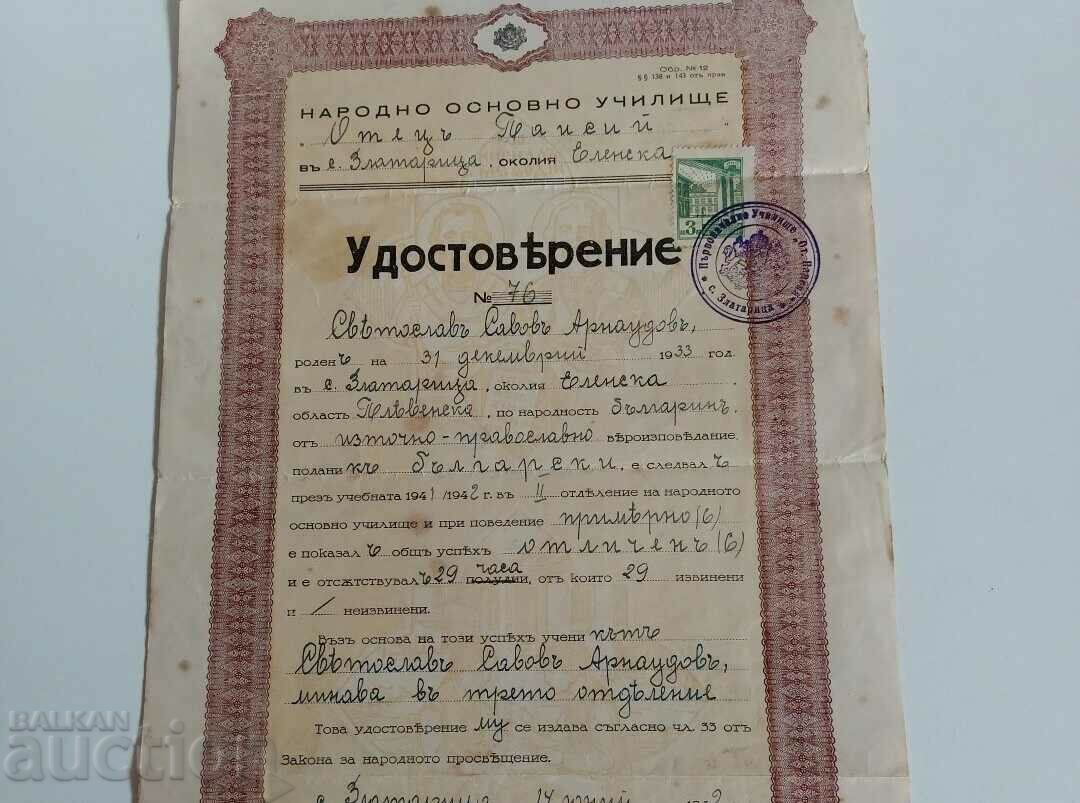 Обр. № 12
§ § 138 и 143 отъ прав
НАРОДНО ОСНОВНО УЧИЛИЩЕ
„ Отецъ Паисий “
въ с. Златарица, околия Еленска
3
Първоначално Училище „От.
с. Златарица
Удостовѣрение
№ 76
Свѣтославъ Савовъ Арнаудовъ,
роленъ на 31 декемврий 1933 год.
въ с. Златарица, околия Еленска
область Плѣвенска, по народность българинъ
отъ източно-православно вѣроизповѣдание,
подани къ български, е следвалъ
презъ учебната 1941/1942 г. въ II отдѣление на народното
основно училище и при поведение примѣрно (6)
е показалъ общъ успѣхъ отличенъ (6)
и е отсѫтствувалъ 29 часа полудни, отъ които 29 извинени
и / неизвинени.
Възъ основа на този успѣхъ учени кътъ
Свѣтославъ Савовъ Арнаудовъ,
минава въ трето отдѣление
Това удостовѣрение му се издава съгласно чл. 33 отъ
Закона за народното просвѣщение.
с. Златарица 14 юний
BALKAN
auction